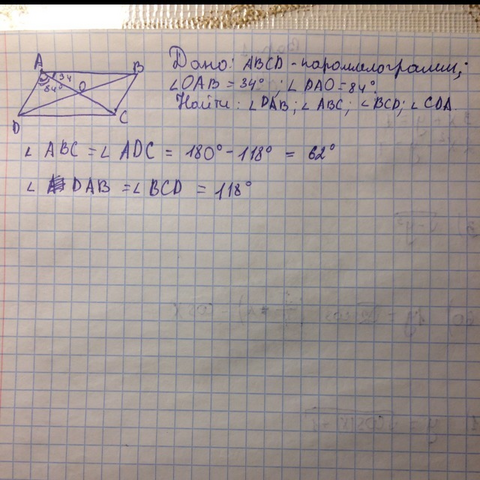 A B C D O 34 84°
Дано: ABCD - параллелограмм;
∠OAB = 34°; ∠DAO = 84°.
Найти: ∠DAB; ∠ABC; ∠BCD; ∠CDA
∠ABC = ∠ADC = 180° - 118° = 62°
∠DAB = ∠BCD = 118°